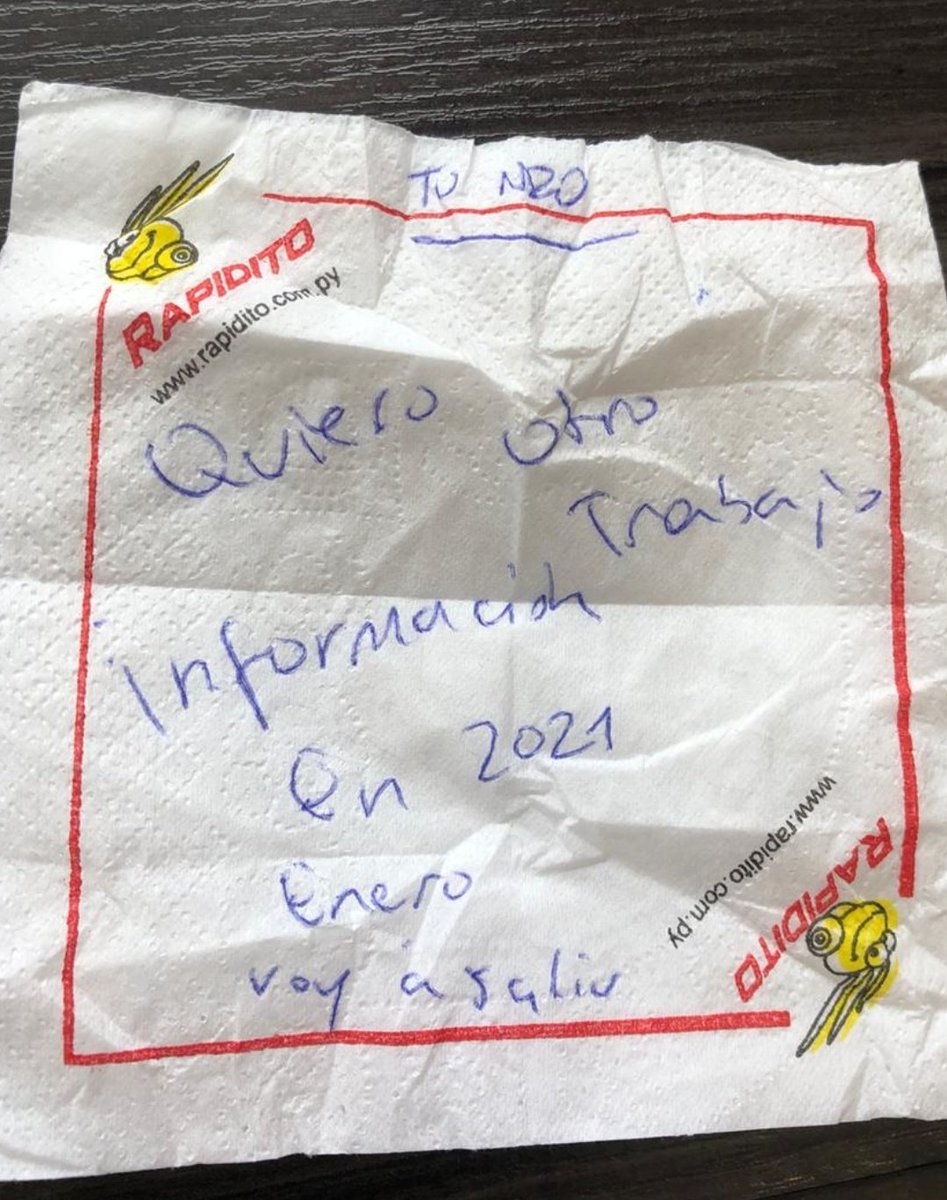 TU NRO
RAPIDITO
www.rapidito.com.py
Quiero otro
Trabajo
información
En 2021
Enero
voy a salir
www.rapidito.com.py
RAPIDITO